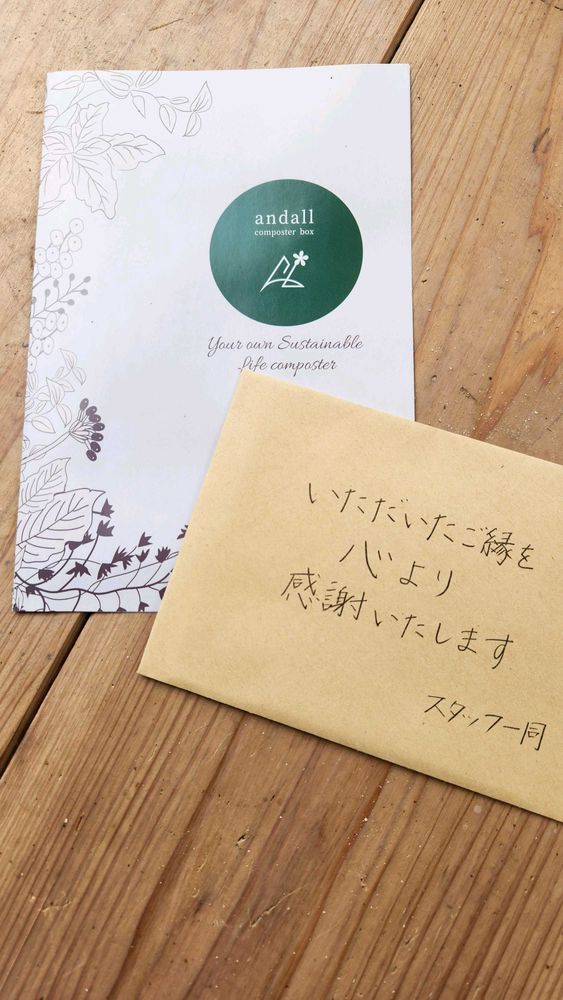 andall
composter box
Your own Sustainable
Life composter
いただいたご縁を
心より
感謝いたします
スタッフ一同